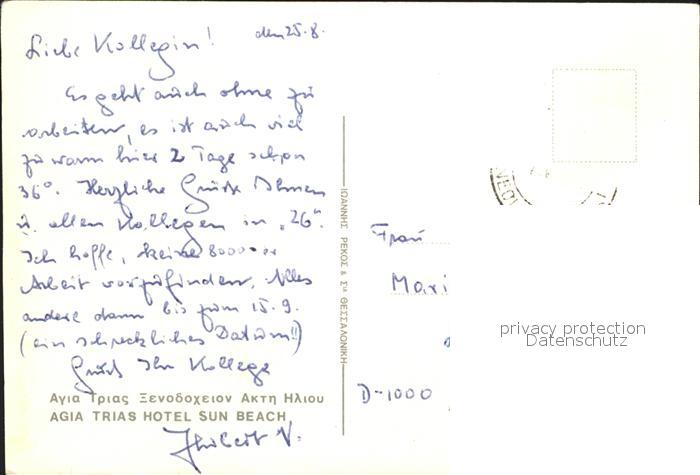 Liebe Kollegin! den 25.8.
Es geht auch ohne zu
arbeiten, es ist auch viel
zu warm hier 2 Tage schon
36°. Herzliche Grüße Ihnen
u. allen Kollegen in „26“.
Ich hoffe, keine 8000
Arbeit vorzufinden. Alles
andere dann bis zum 15.9.
(ein schreckliches Datum!!)
Gruß Ihr Kollege
Αγια Τριας Ξενοδοχειον Ακτη Ηλιου
AGIA TRIAS HOTEL SUN BEACH
V.
ΙΩΑΝΝΗΣ ΡΕΚΟΣ & Σια ΘΕΣΣΑΛΟΝΙΚΗ
Frau
Mari
D-1000
privacy protection
Datenschutz